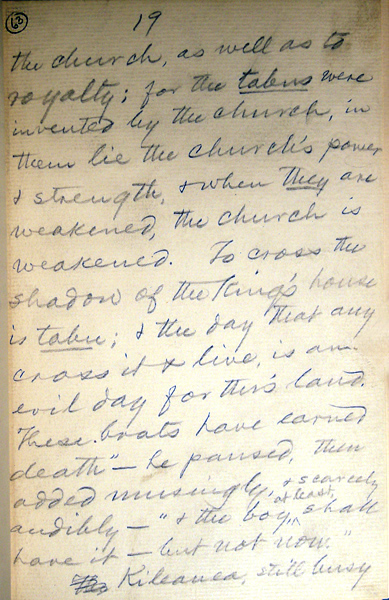 63
19
the church, as well as to
royalty; for the tabus were
invented by the church, in
them lie the church's power
& strength, & when they are
weakened, the church is
weakened. To cross the
shadow of the King's house
is tabu; & the day that any
cross it & live, is an
evil day for this land.
These brats have earned
death" — he paused, then
added musingly, & scarcely
audibly — "& the boy, at least, shall
have it — but not now."
Kileanea, still busy